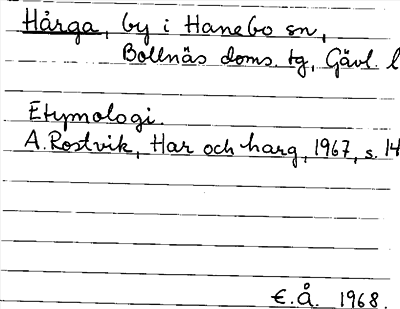 Hårga, by i Hanebo sn,
Bollnäs doms. tg, Gävl. l
Etymologi.
A. Rostvik, Har och harg, 1967, s. 14
E.Å. 1968.